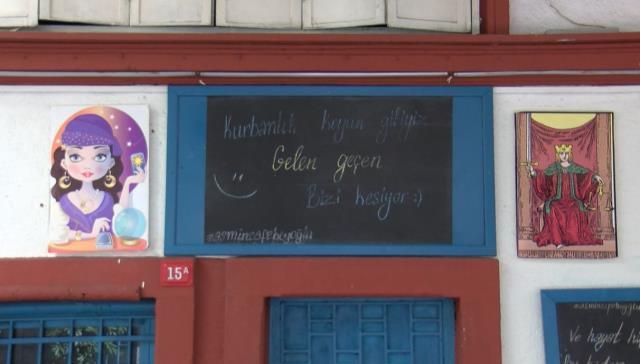 Kurbanlık koyun gibiyiz
Gelen geçen
Bizi kesiyor :)
#asmincafebeyoğlu
15A
#asmincafebeyoğlu
Ve hayat